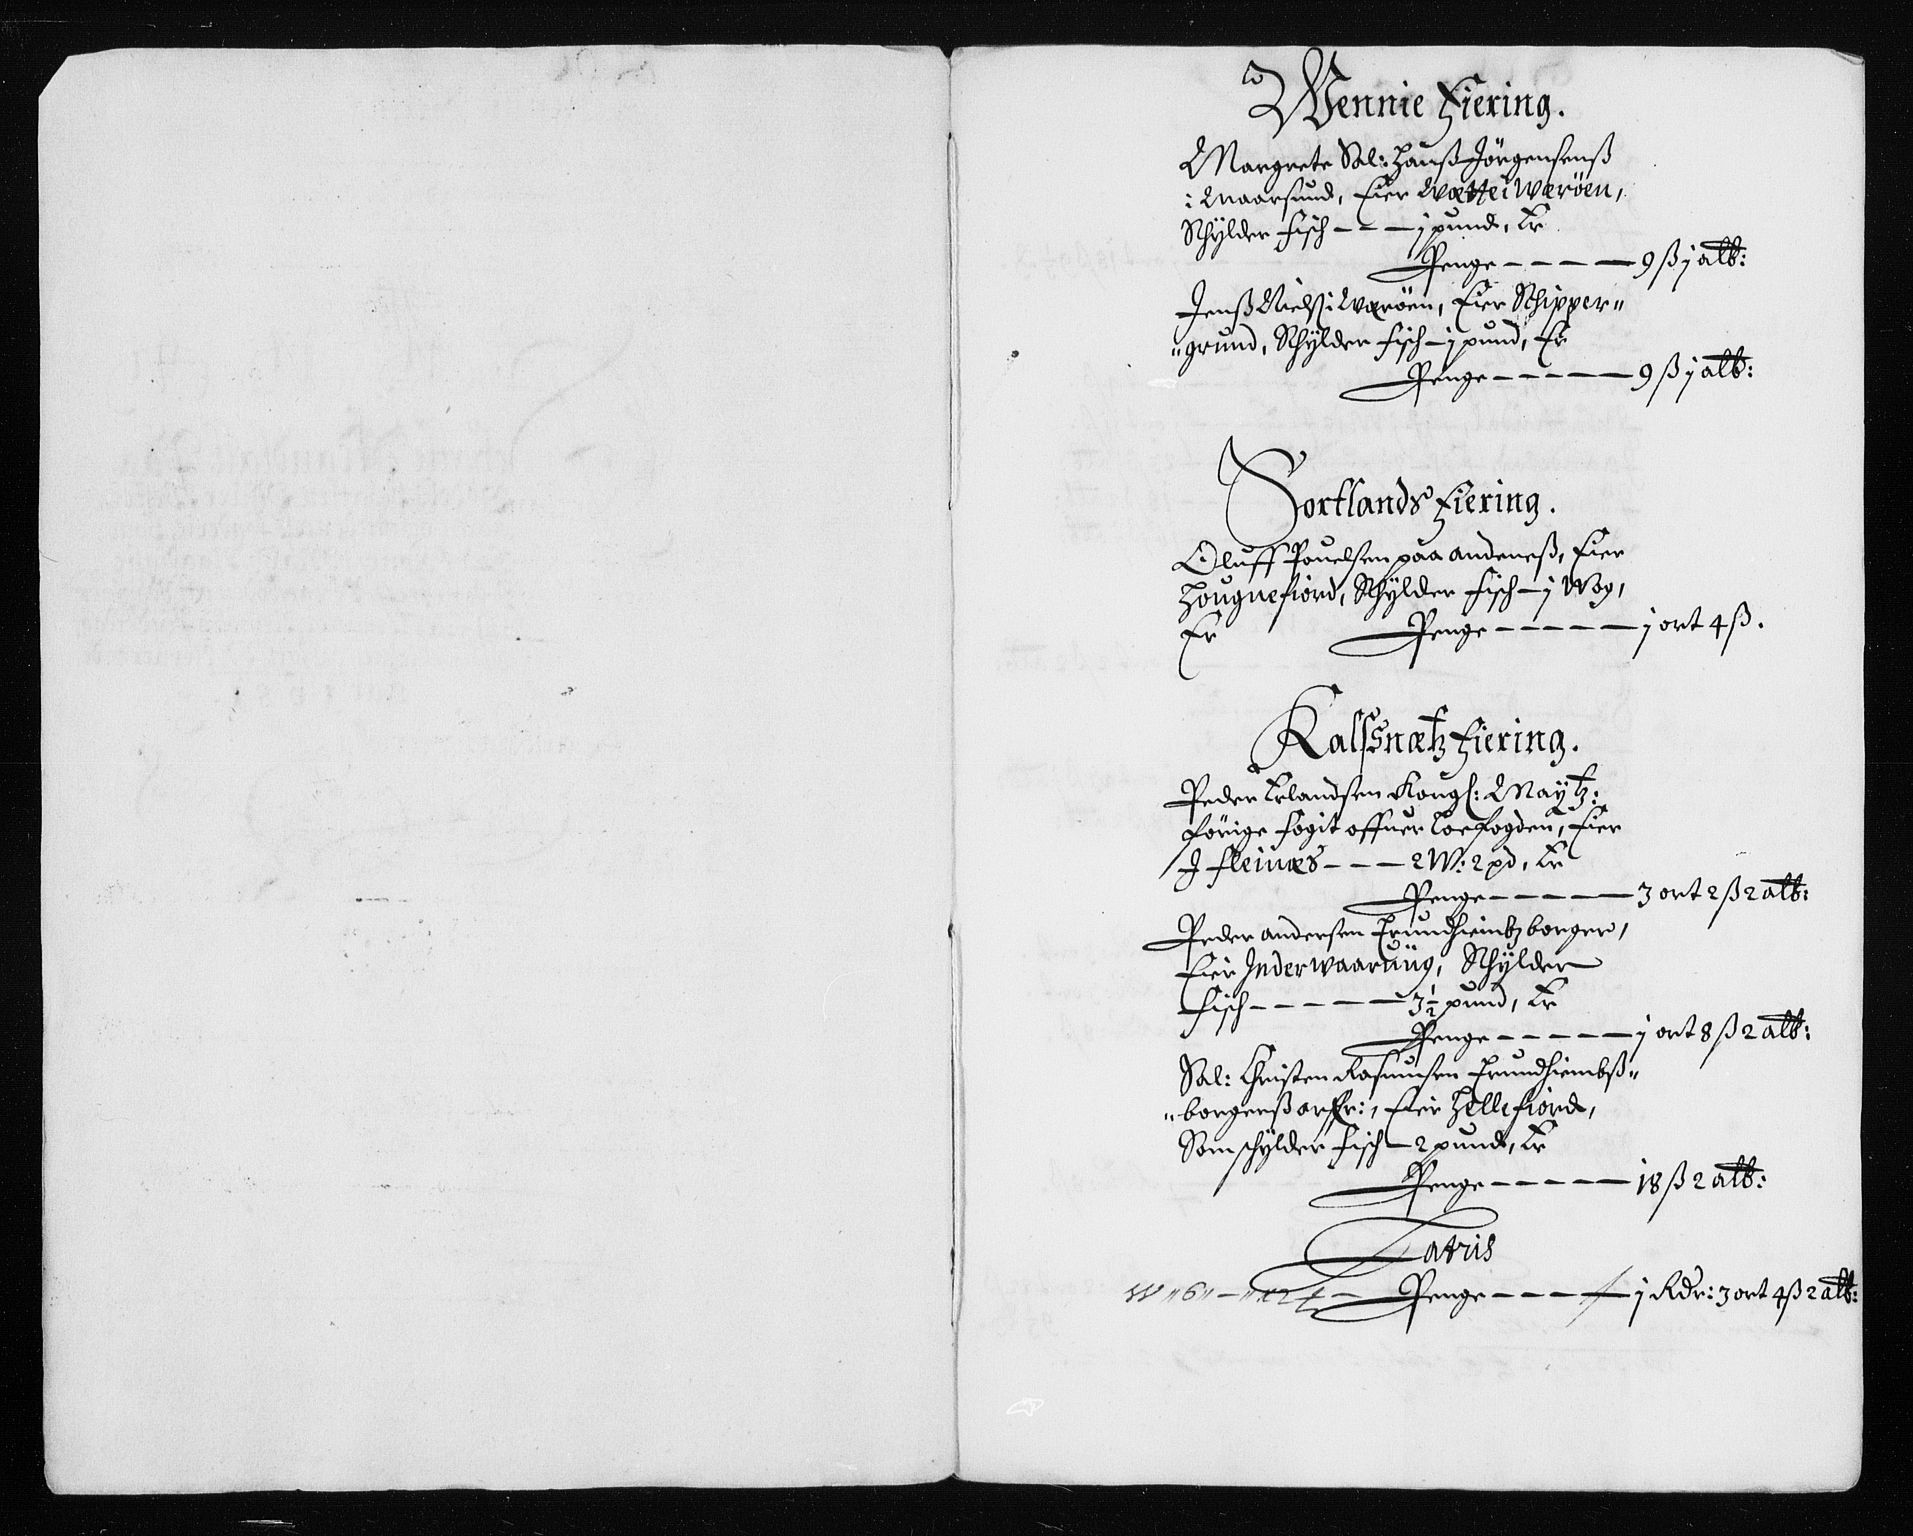 Wennie Fiering.
Margrete Sal: Hanß Jörgensenß
i Maarsund, Eier Wætte i Werøen,
Schÿlder fisch - - - j pund, Er
Penge - - - - - 9 ß j alb:
Jenß Nielß: i Werøen, Eier Schipper„
„grund, Schÿlder fisch - j pund, Er
Penge - - - - - 9 ß j alb:
Sortlands Fiering.
Oluff Pouelsen paa Andeneß, Eier
Hougnefiord, Schÿlder fisch - j Wog,
Er Penge - - - - - j ort 4 ß.
Kalssnætz Fiering.
Peder Erlandsen Kongl: Maÿtz:
forige fogit offuer Loefogden, Eier
J fleinæs - - - 2 W: 2 pd, Er
Penge - - - - - 3 ort 2 ß 2 alb:
Peder Andersen Trundhiembz borger,
Eier Inderwaaruüg, Schÿlder
fisch - - - - - 3½ pund, Er
Penge - - - - - j ort 8 ß 2 alb:
Sal: Christen Rasmusen Trundhiembß„
„borgerß arffr:, Eier Hellefiord,
Som schÿlder fisch - 2 pund, Er
Penge - - - - - 18 ß 2 alb:
Latris
W „6„ - Penge - - - - j Rdr: 3 ort 4 ß 2 alb: